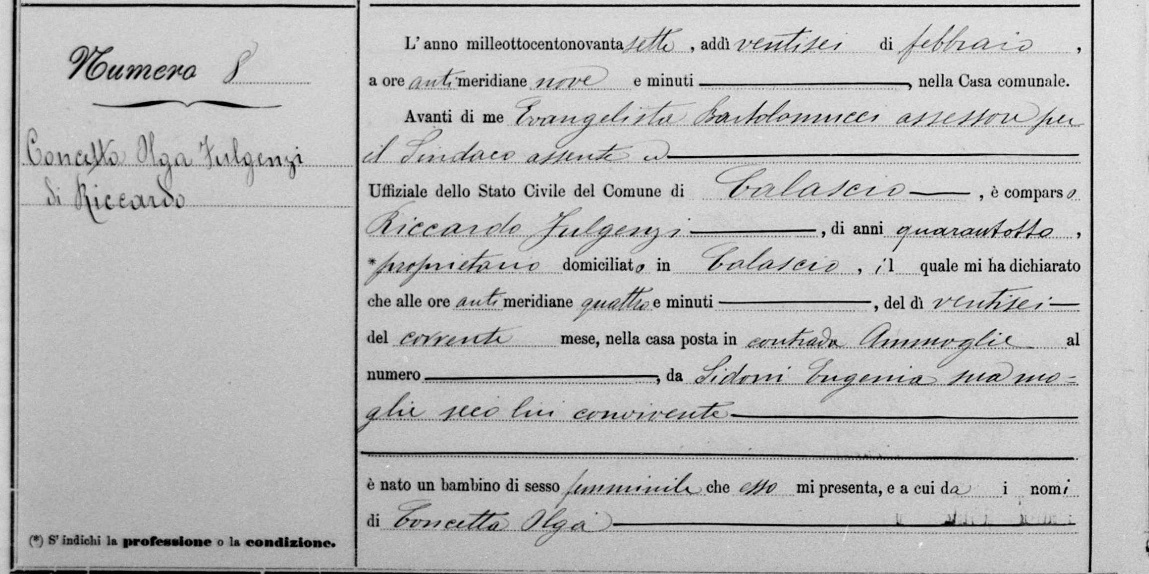 Numero 8
Concetta Olga Fulgenzi
di Riccardo
(*) S'indichi la professione o la condizione.
L'anno milleottocentonovantasette, addì ventisei di febbraio,
a ore antimeridiane nove e minuti , nella Casa comunale.
Avanti di me Evangelista Bartolomucci assessore per
il Sindaco assente
Uffiziale dello Stato Civile del Comune di Calascio , è comparso
Riccardo Fulgenzi , di anni quarantotto ,
*proprietario domiciliato in Calascio , il quale mi ha dichiarato
che alle ore antimeridiane quattro e minuti , del dì ventisei
del corrente mese, nella casa posta in contrada al
numero , da Sidoni Eugenia sua mo-
glie seco lui convivente
è nato un bambino di sesso femminile che esso mi presenta, e a cui da i nomi
di Concetta Olga